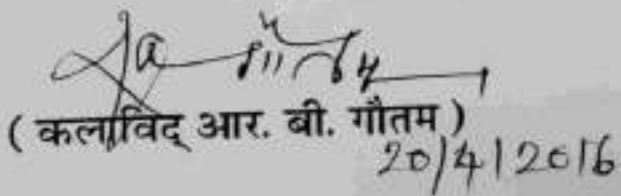 ( कलाविद् आर. बी. गौतम )
20/4/2016